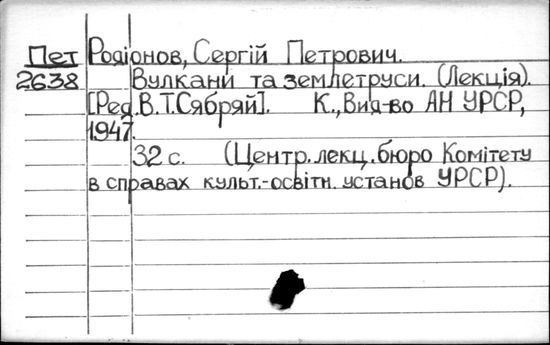 Пет Родіонов, Сергій Петрович.
2638 Вулкани та землетруси. (Лекція).
[Ред. В.Т.Сябряй]. К., Вид-во АН УРСР,
1947.
32 с. (Центр. лекц. бюро Комітету
в справах культ.-освітн. установ УРСР).